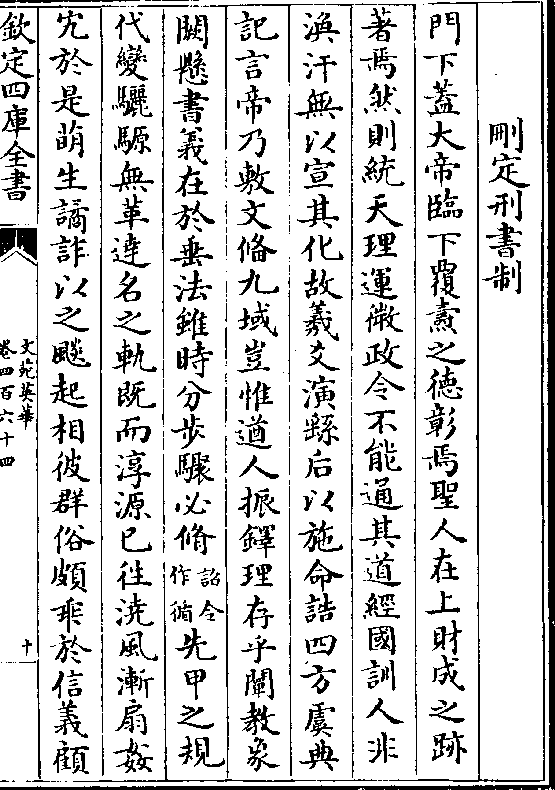 刪定刑書制
門下蓋大帝臨下覆燾之德彰焉聖人在上財成之跡
著焉然則統天理運微政令不能通其道經國訓人非
渙汗無以宣其化故羲爻演繇后以施命誥四方虞典
記言帝乃敷文脩九域豈惟遒人振鐸理存乎闡教象
闕懸書義在於垂法雖時分步驟必脩詔令作循先甲之規
代變驪騵無革達名之軌既而淳源已往澆風漸扇姦
宄於是萌生譎詐以之飈起相彼群俗頗乖於信義顧
欽定四庫全書
文苑英華
卷四百六十四
十